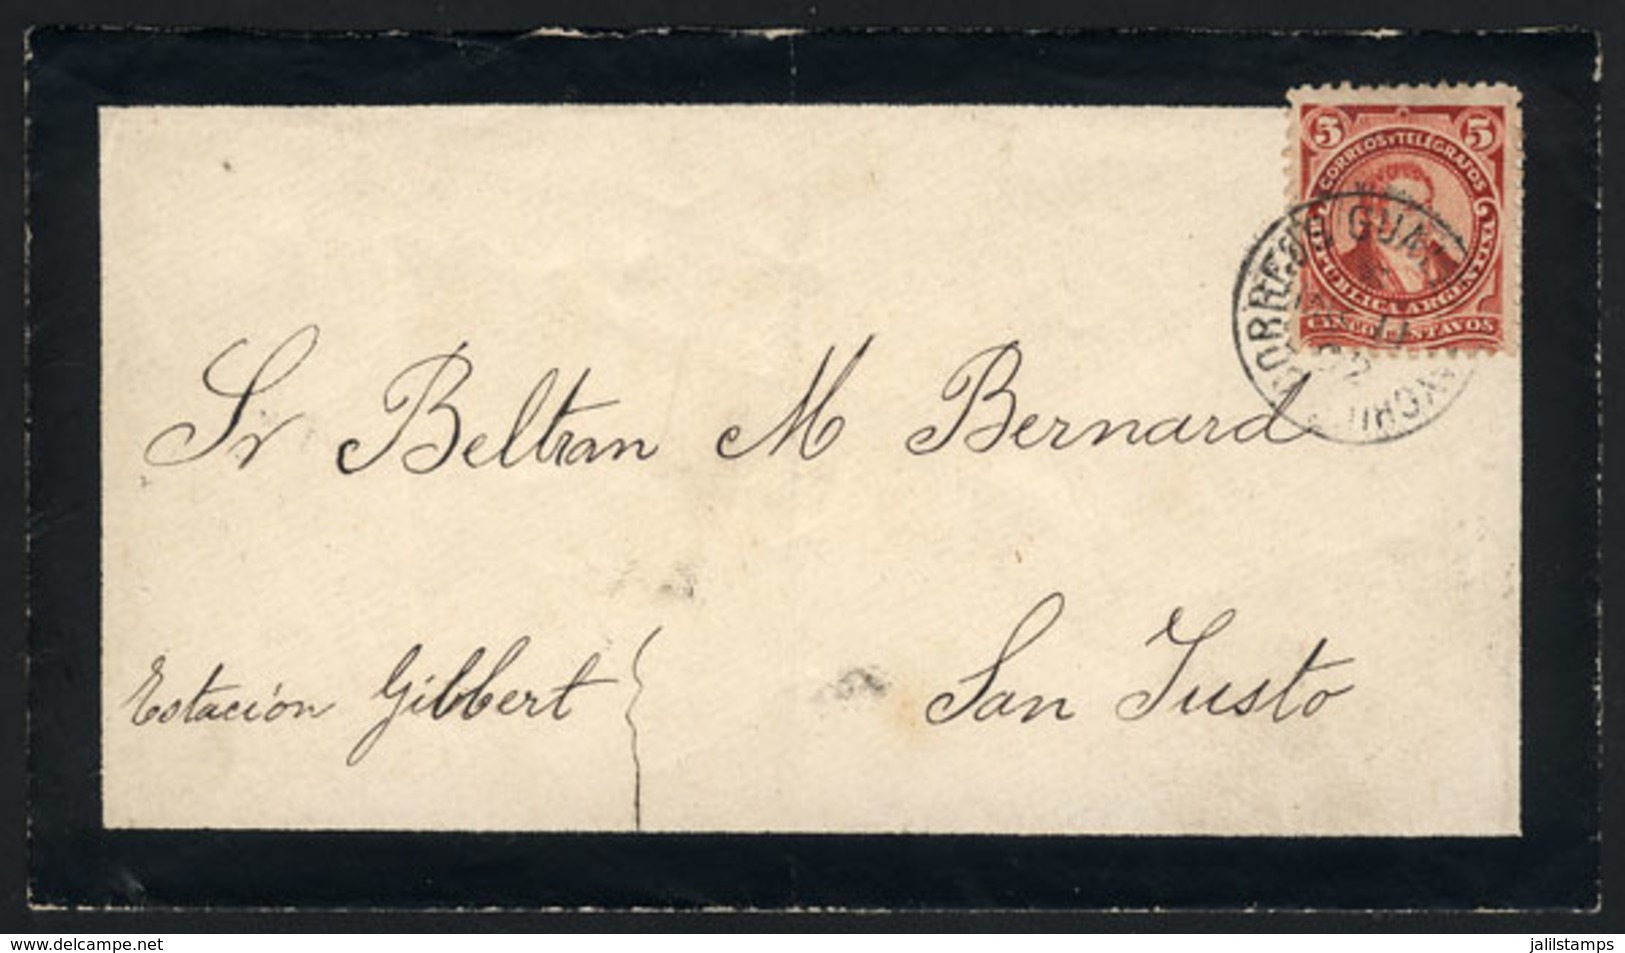 5 5
CORREOS Y TELEGRAFOS
REPUBLICA ARGENTINA
CINCO CENTAVOS
CORREOS
11
Sr Beltran M Bernard
Estación Gilbert
San Justo
www.delcampe.net
jalilstamps